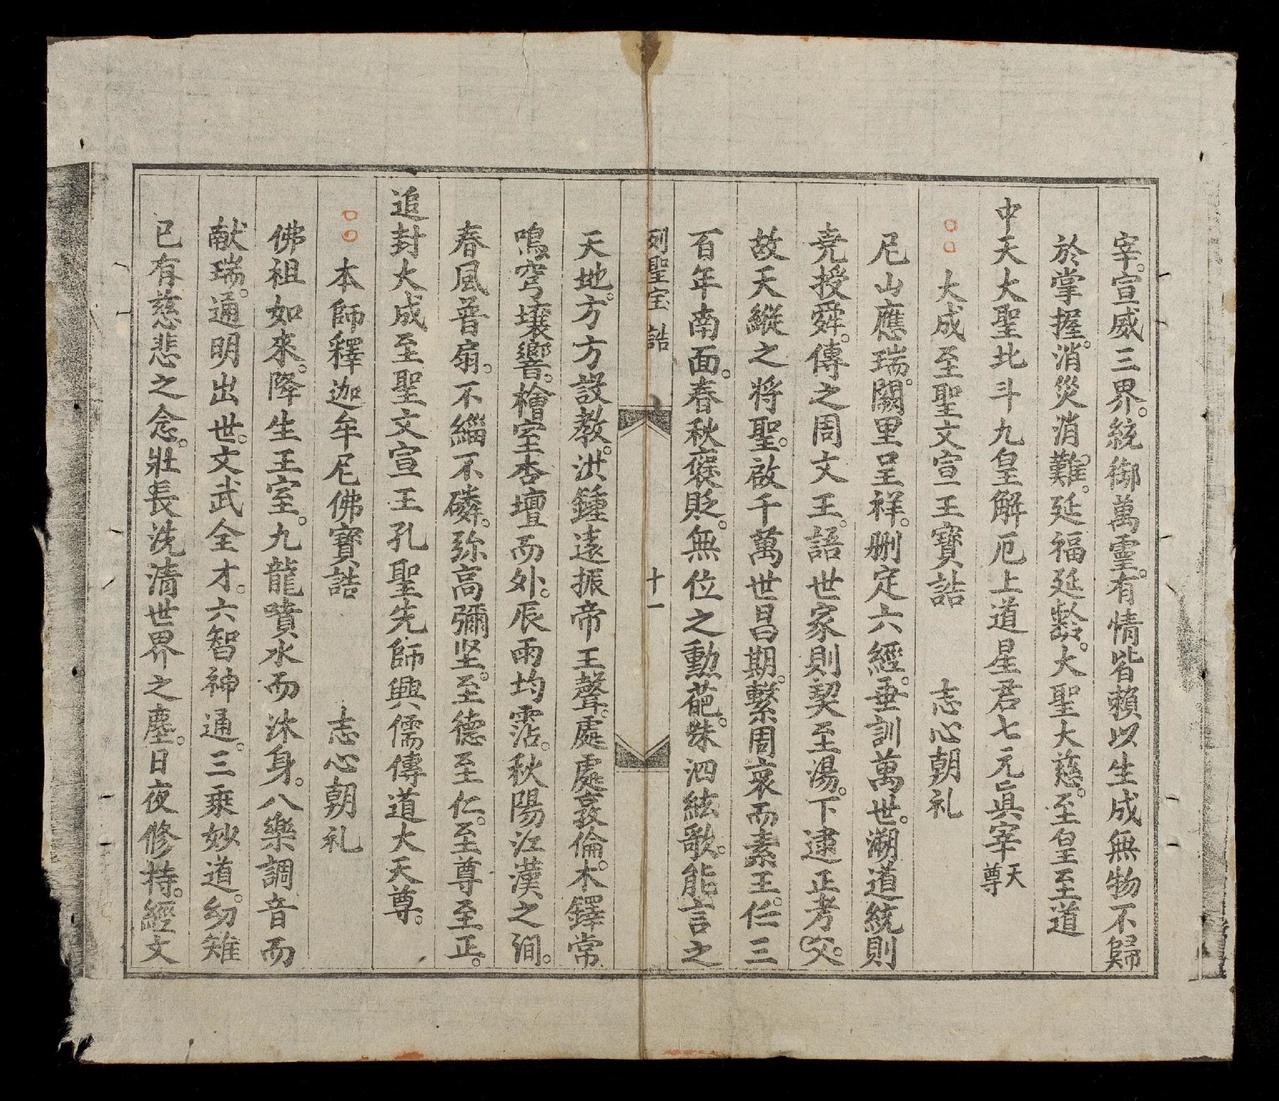 宰。宣威三界。統御萬靈。有情皆賴以生成無物不歸
於掌握。消災消難。延福延齡。大聖大慈。至皇至道
中天大聖北斗九皇解厄上道星君七元真宰天尊
○○ 大成至聖文宣王寶誥 志心朝礼
尼山應瑞。闕里呈祥。删定六經。垂訓萬世。溯道統則
堯授舜。傳之周文王。語世家則契至湯。下逮正考父。
故天縱之将聖。啟千萬世昌期。繫周衰而素王。仁三
百年南面。春秋褒貶。無位之勳葩。洙泗絃歌。能言之
列聖宝誥 十一
天地。方方設教。洪鍾遠振帝王聲。處處敦倫。木鐸常
鳴穹壤響。檜室杏壇而外。辰雨均霑。秋陽江漢之間。
春風普扇。不緇不磷。弥高彌坚。至德至仁。至尊至正。
追封大成至聖文宣王孔聖先師興儒傳道大天尊。
○○ 本師釋迦牟尼佛寶誥 志心朝礼
佛祖如來。降生王室。九龍噴水而沐身。八樂調音而
献瑞。通明出世。文武全才。六智神通。三乘妙道。幼雉
已有慈悲之念。壯長洗清世界之塵。日夜修持。經文